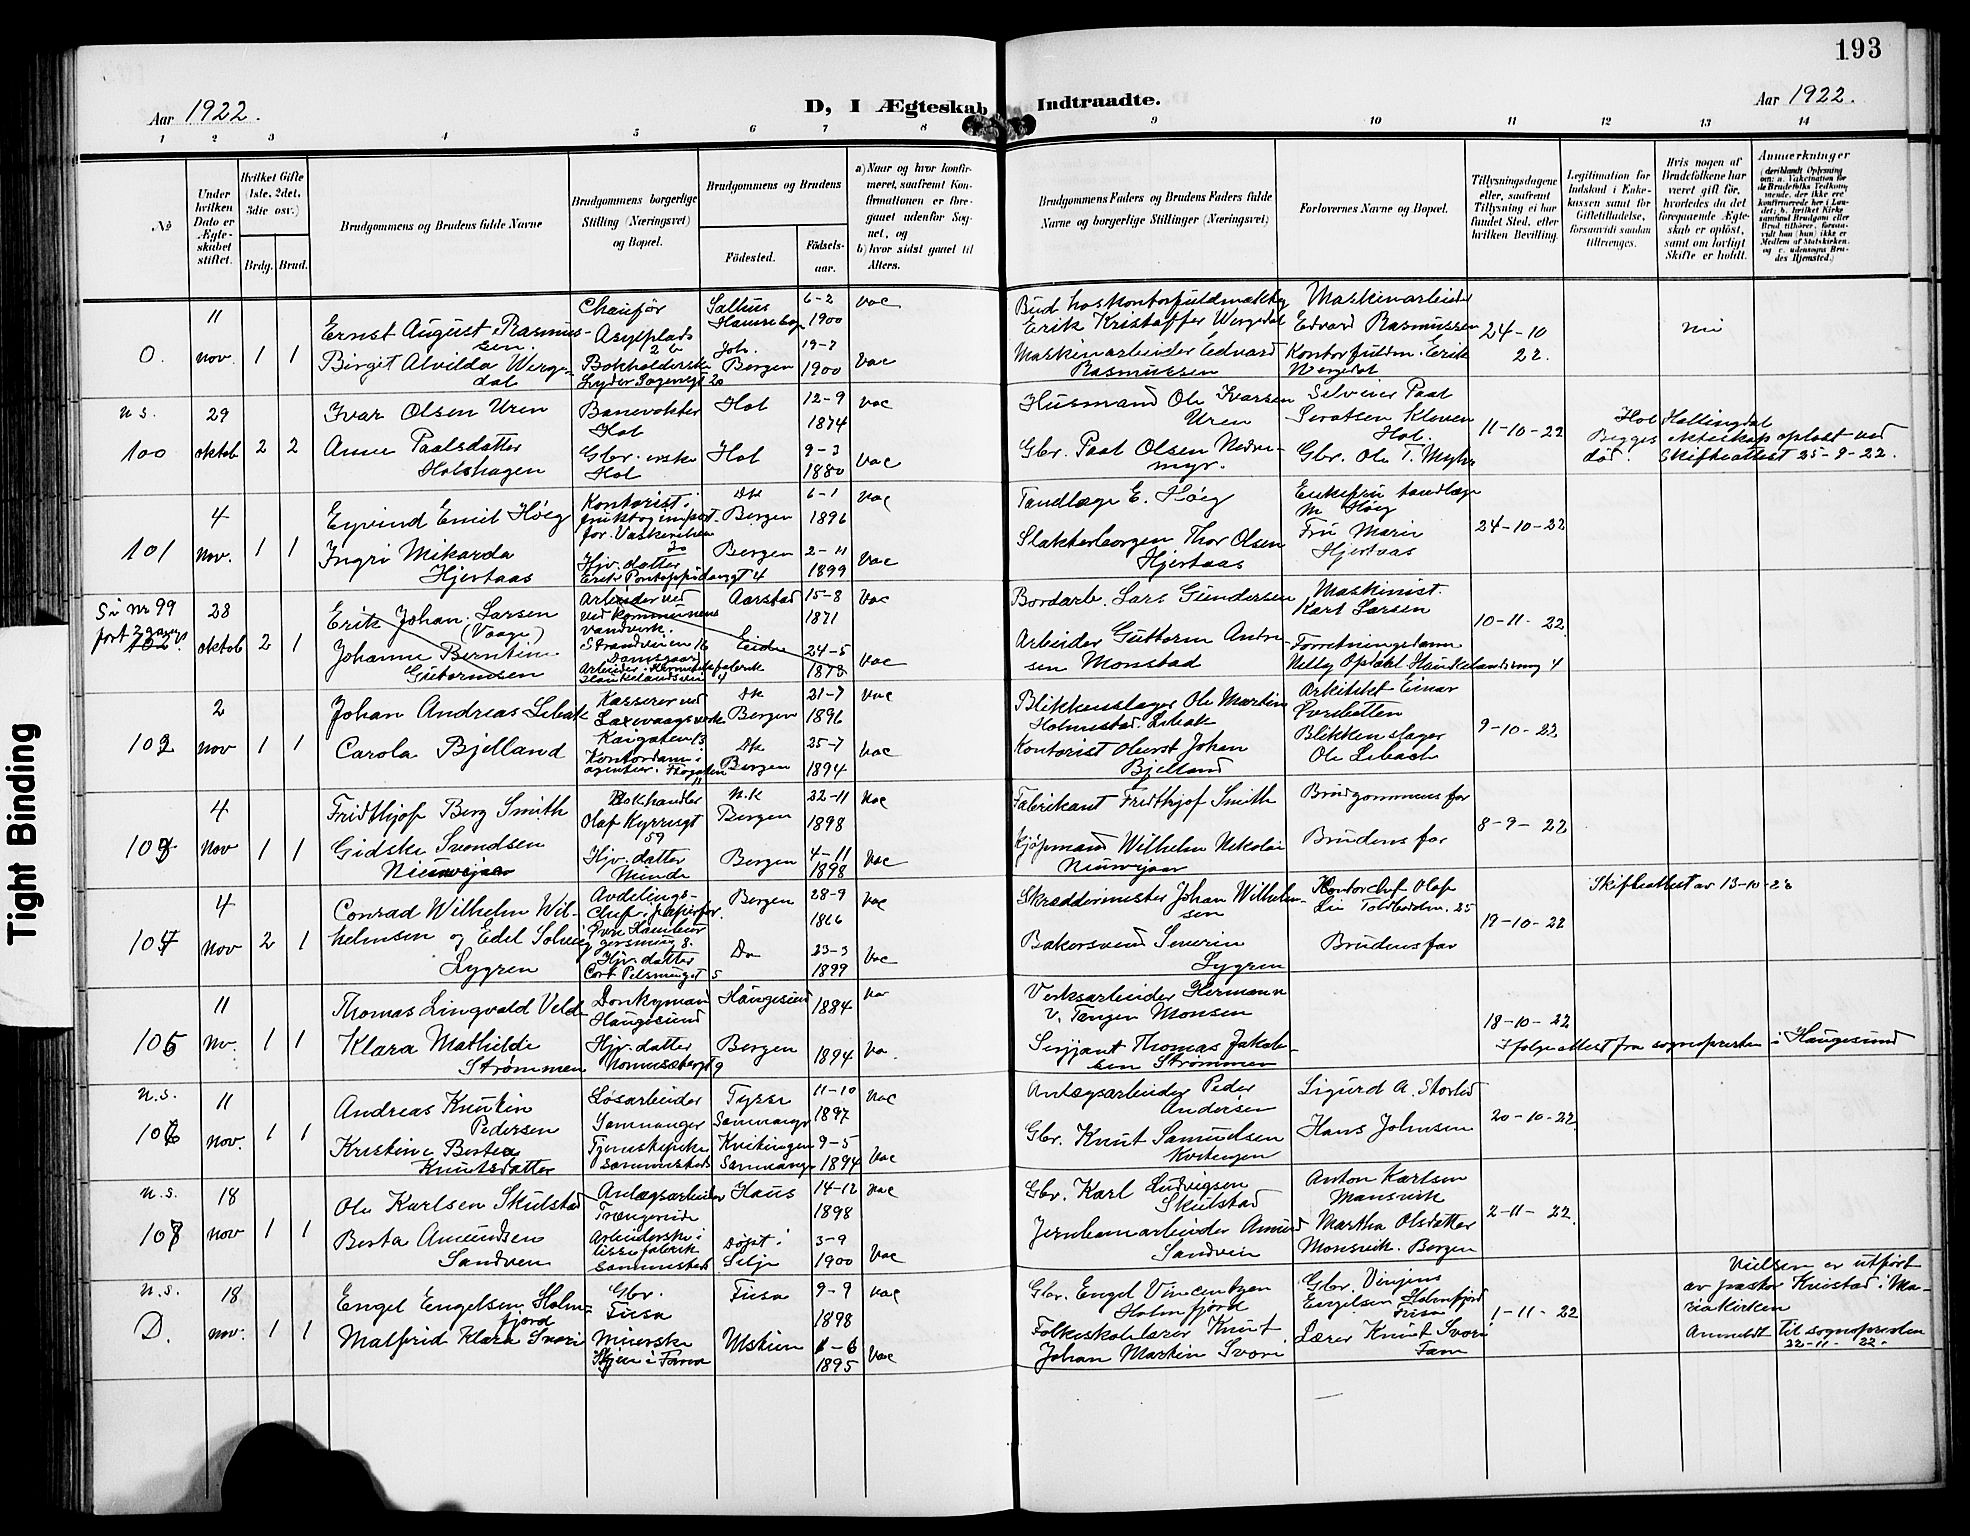 193
Aar 1922.
D, I Ægteskab Indtraadte.
Aar 1922.
1 2 3 4 5 6 7 8 9 10 11 12 13 14
№
Under hvilken Dato er Ægteskabet stiftet.
Hvilket Gifte (1ste, 2det, 3die osv.)
Brdg. Brud.
Brudgommens og Brudens fulde Navne
Brudgommens borgerlige Stilling (Næringsvei) og Bopæl.
Brudgommens og Brudens
Födested.
Födselsaar.
a) Naar og hvor konfirmeret, saafremt Konfirmationen er foregaaet udenfor Sognet, og
b) hvor sidst gaaet til Alters.
Brudgommens Faders og Brudens Faders fulde Navne og borgerlige Stillinger (Næringsvei)
Forlovernes Navne og Bopæl.
Tillysningsdagene eller, saafremt Tillysning ei har fundet Sted, efter hvilken Bevilling.
Legitimation for Indskud i Enkekassen samt for Giftetilladelse, forsaavidt saadan tiltrænges.
Hvis nogen af Brudefolkene har været gift før, hvorledes da det foregaaende Ægteskab er opløst, samt om lovligt Skifte er holdt.
Anmerkninger
(deriblandt Oplysning om: a. Vakcination for de Brudefolks Vedkommende, der ikke ere konfirmerede her i Landet; b. hvilket Kirkesamfund Brudgom eller Brud tilhører, forsaavidt han (hun) ikke er Medlem af Statskirken, og c. udensogns Brudes Hjemsted.)
0. 11 nov. 1 1
Ernst August Rasmussen.
Birgit Alvilda Wergedal
Chauför
Asylplads 2 b
Bokholderske
Lyder Sagensgt 20
Salhus
Bergen
6-2 1900
19-7 1900
vac
vac
Erik Kristoffer Wergedal
Maskinarbeider Edvard Rasmussen
Maskinarbeider Edvard Rasmussen
Kontorfuldm. Erik Wergedal
24-10 22.
n.s. 100 29 oktob 2 2
Ivar Olsen Uren
Anne Paalsdatter Holshagen
Banevokter Hol
Gbr. enke Hol
Hol
Hol
12-9 1874
9-3 1880
vac
vac
Husmand Ole Ivarsen Uren
Gbr. Paal Olsen Nedremyr.
Kleven Hol.
Gbr. Ole T. Myhre
11-10-22
Hol Hallingdal
Begges ekteskap opløst ved død. Skifteattest 25-9-22.
101 4 Nov. 1 1
Eyvind Emil Höeg
Ingri Mikarda Hjertaas
Kontorist i
Hjv. datter
Erik Pontoppidansgt 4
Dk Bergen
Bergen
6-1 1896
2-11 1899
vac
vac
Tandlæge E. Höeg
Slakterborger Thor Olsen Hjertaas
Enkefru tandlæge M Höeg
Fru Marie Hjertaas
24-10-22
Se nr 99
102. 28 oktob 2 1
Erik Johan Larsen (Vaage)
Johanne Berntine Guttormsen
Arbeider ved
ved kommunens vandverk.
Strandveien 16 Damsgaard
Aarstad
Eide
15-8 1871
24-5 1878
vac
vac
Bordarb. Lars Gundersen
Arbeider Guttorm Andresen Monstad
Maskinist. Karl Larsen
Forretningsdame Nelly Opdahl Haukelandsvei 4
10-11-22.
102 2 nov 1 1
Johan Andreas Libak
Carola Bjelland
Kasserer ved Laxevaags verk
Kaigaten 13
Kontordame i
Dk Bergen
Dk Bergen
21-7 1896
25-7 1894
vac
vac
Blikkenslager Ole Martin Holmestad Libak
Kontorist Johan Bjelland
Arkitekt Einar
Blikkenslager Ole Libach
9-10-22
103 4 Nov 1 1
Fridthjof Berg Smith
Gidske Svendsen Nieuwejaar
Bokhandler
Olaf Kyrresgt 59
Hjv. datter Minde
N.K Bergen
Bergen
22-11 1898
4-11 1898
vac
vac
Fabrikant Fridthjof Smith
Kjöpmand Wilhelm Nikolai Nieuwejaar
Brudgommens far
Brudens far
8-9-22
104 4 Nov 2 1
Conrad Wilhelm Wilhelmsen og Edel Solveig Lygren
Avdelingschef
Hjv. datter
Bergen
Do
28-9 1866
23-3 1899
vac
vac
Skræddermester Johan Wilhelmsen
Bakersvend Severin Lygren
Kontorchef Olaf Lie Toldbodalm. 25
Brudens far
19-10-22
Skifteattest av 13-10-22
105 11 Nov. 1 1
Thomas Lingvald Velde
Klara Mathilde Strømmen
Donkeyman Haugesund
Hjv. datter
Haugesund
Bergen
1884
1894
vac
va.
Verksarbeider Hermann v. Tangen Monsen
Serjant Thomas Jakobsen Strømmen
18-10-22
Ifølge attest fra sogneprästen i Haugesund
n.s. 106 11 Nov. 1 1
Andreas Knutin Pedersen
Kristine Bertea Knutsdatter
Løsarbeider Samnanger
Tjenestepike sammesteds
Tysse Samnanger
Samnanger
11-10 1897
9-5 1894
vac
vac
Anlægsarbeider Peder Andersen
Gbr. Knut Samuelsen
Sigurd A.
Hans Johnsen
20-10-22.
n.s. 107 18 nov 1 1
Ole Karlsen Skulstad
Berta Amundsen Sandven
Anlægsarbeider Trængereide
Arbeiderske i
sammesteds
Haus
Døpt i Silje
14-12 1898
3-9 1900
vac
vac
Gbr. Karl Ludvigsen Skulstad
Jernbanearbeider Amund Sandven
Anton Karlsen
Martha Olsdatter
Bergen
2-11-22.
n.s. D. 18 nov. 1 1
Engel Engelsen Holmefjord
Malfrid Klara Svori
Gbr. Fusa
Fusa
9-9 1898
1-6 1895
vac
vac
Gbr. Engel Vincentsen Holmefjord
Folkeskolelærer Knut Johan Martin Svori
Gbr. Vinjens Engelsen Holmefjord Fusa
Lærer Knut Svori Fane
1-11-22
Vielsen er utført av pastor Knustad i Mariakirken
Anmeldt til sognepresten 22-11-22.
Tight Binding